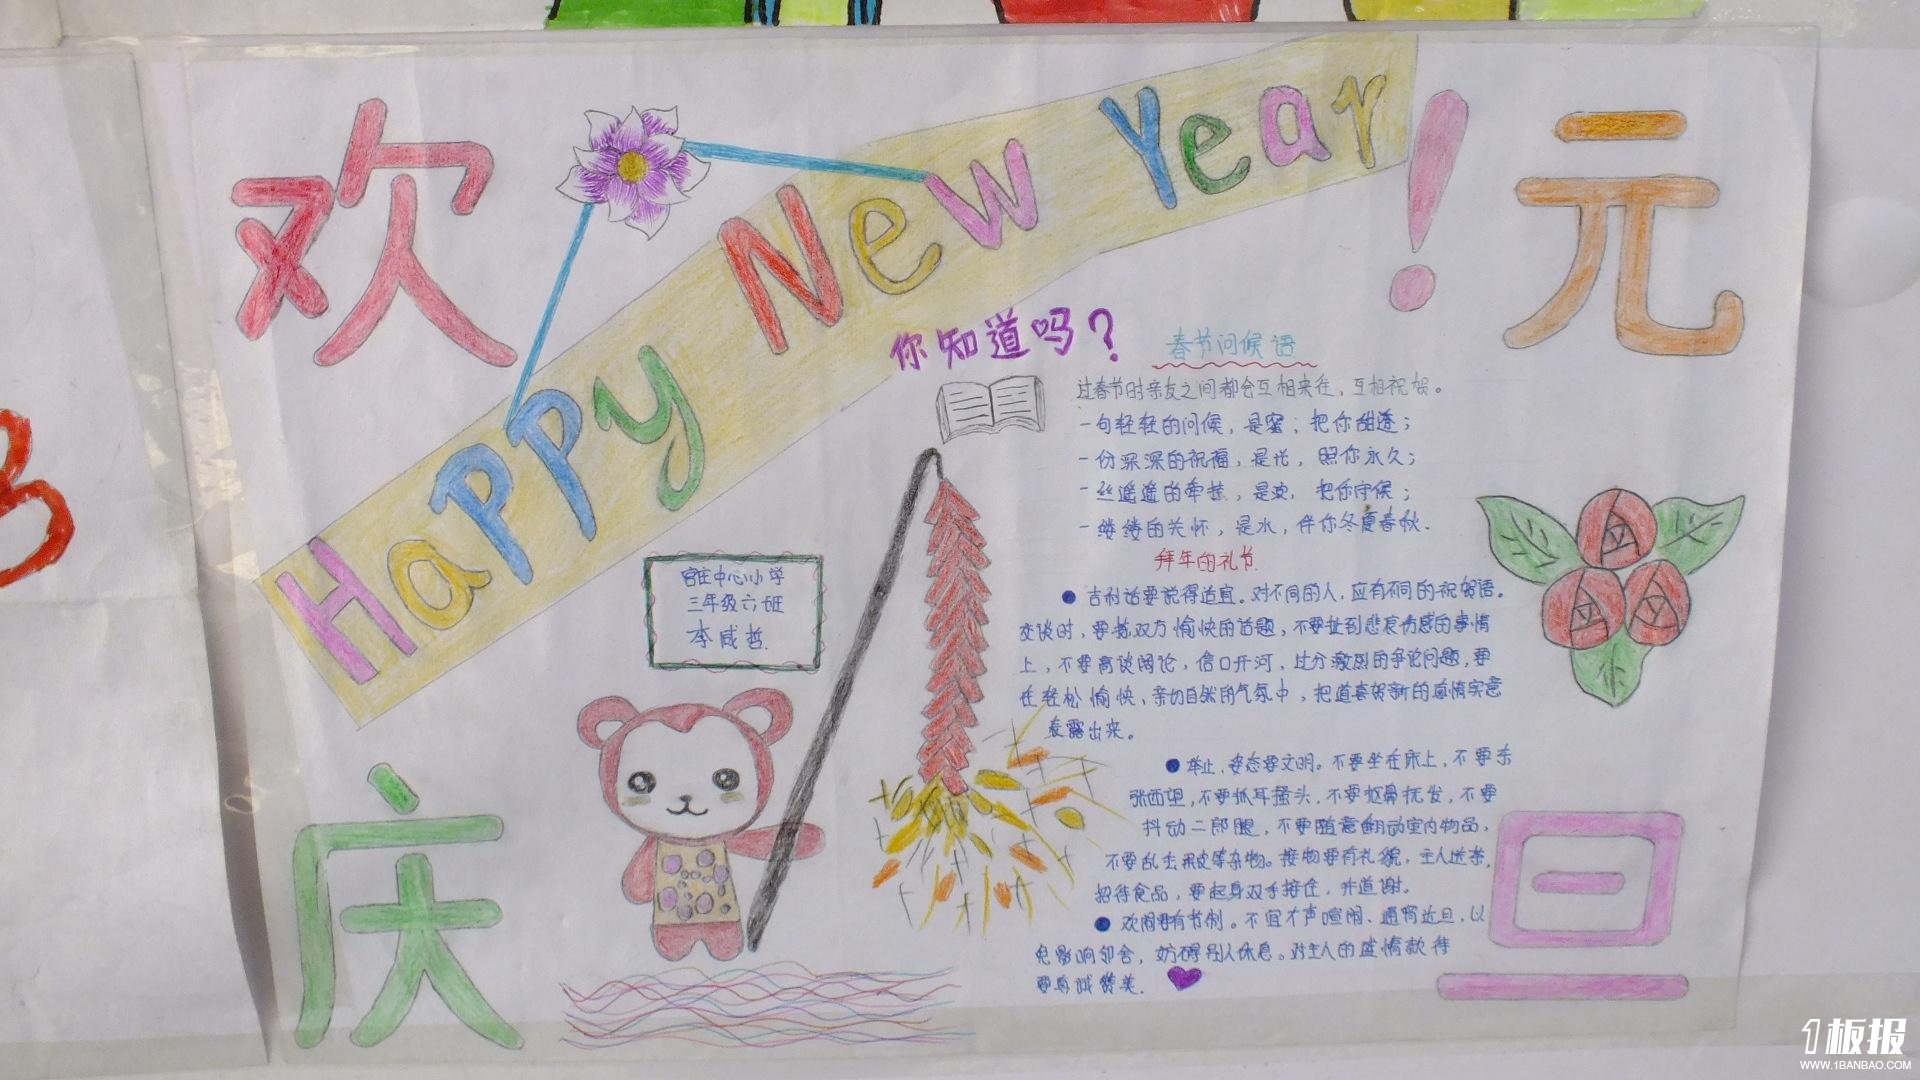 欢
庆
元
旦
Happy New Year!
你知道吗？
春节问候语
过春节时亲友之间都会互相来往，互相祝贺。
一句轻轻的问候，是蜜，把你甜透；
一份深深的祝福，是光，照你永久；
一丝遥遥的牵挂，是，把你守候；
一缕缕的关怀，是水，伴你冬夏春秋.
拜年的礼节
● 吉利话要说得适宜。对不同的人，应有不同的祝贺语。
交谈时，要找双方愉快的话题，不要扯到悲哀伤感的事情
上，不要高谈阔论，信口开河，过分激烈的争论问题，要
在轻松愉快，亲切自然的气氛中，把道喜贺新的感情实意
表露出来。
● 举止，姿态要文明。不要坐在床上，不要东
张西望，不要抓耳搔头，不要抠鼻抚发，不要
抖动二郎腿，不要随意翻动室内物品，
不要乱去果皮等杂物。接物要有礼貌，主人送茶，
招待食品，要起身双手接住，并道谢。
● 欢闹要有节制。不宜大声喧闹、通宵达旦，以
免影响邻舍，妨碍别人休息。对主人的盛情款待
要真诚赞美.
宫庄中心小学
三年级六班
李咸哲.
1板报
WWW.1BANBAO.COM